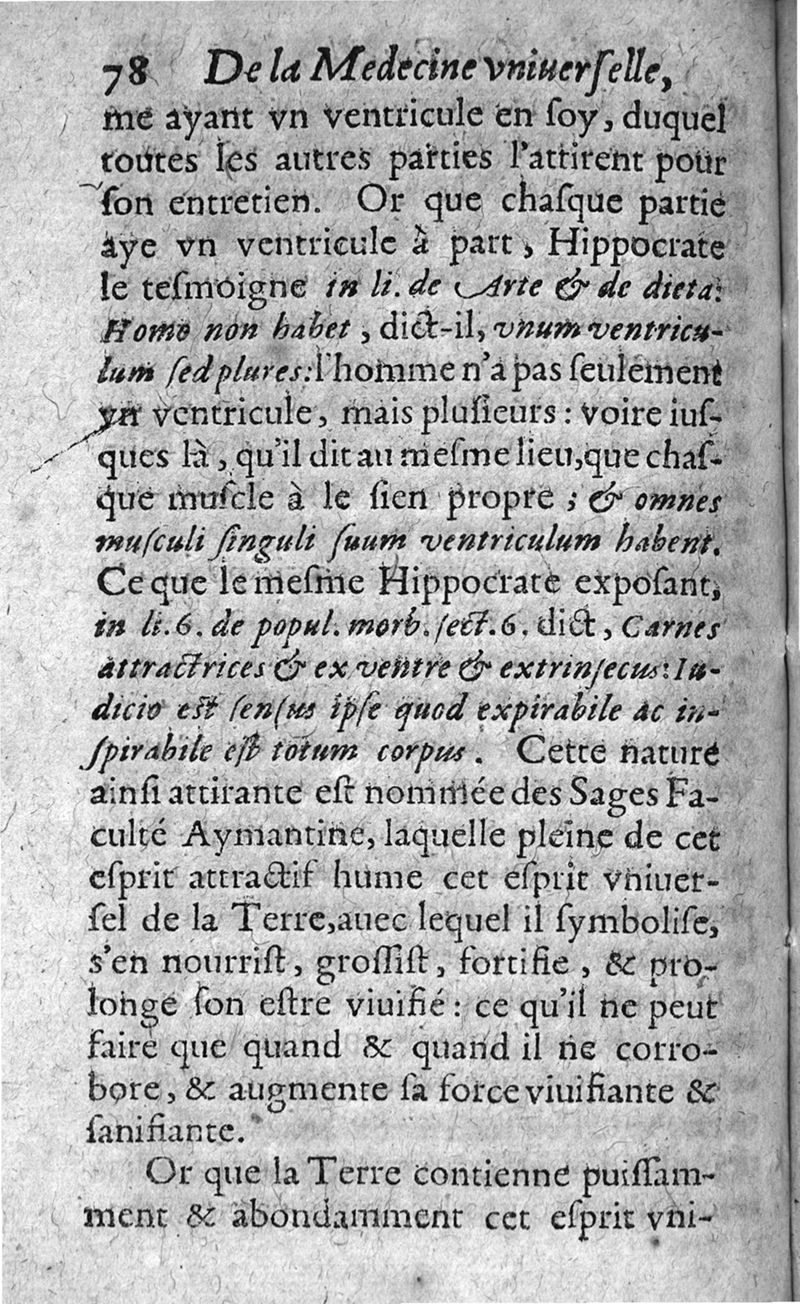 78 De la Medecine vniuerſelle,
me ayant vn ventricule en ſoy, duquel
toutes les autres parties l'attirent pour
ſon entretien. Or que chaſque partie
aye vn ventricule à part, Hippocrate
le teſmoigne in li. de Arte & de dieta:
Homo non habet, dict-il, vnum ventricu-
lum ſed plures: l'homme n'a pas ſeulement
vn ventricule, mais pluſieurs : voire iuſ-
ques là, qu'il dit au meſme lieu, que chaſ-
que muſcle à le ſien propre ; & omnes
muſculi ſinguli ſuum ventriculum habent.
Ce que le meſme Hippocrate expoſant,
in li. 6. de popul. morb. ſect. 6. dict, Carnes
attractrices & ex ventre & extrinſecus: Iu-
dicio eſt ſenſus ipſe quod expirabile ac in-
ſpirabile eſt totum corpus. Cette nature
ainſi attirante eſt nommée des Sages Fa-
culté Aymantine, laquelle pleine de cet
eſprit attractif hume cet eſprit vniuer-
ſel de la Terre, auec lequel il ſymboliſe,
s'en nourriſt, groſſiſt, fortifie, & pro-
longe ſon eſtre viuifié : ce qu'il ne peut
faire que quand & quand il ne corro-
bore, & augmente ſa force viuifiante &
ſanifiante.
Or que la Terre contienne puiſſam-
ment & abondamment cet eſprit vni-